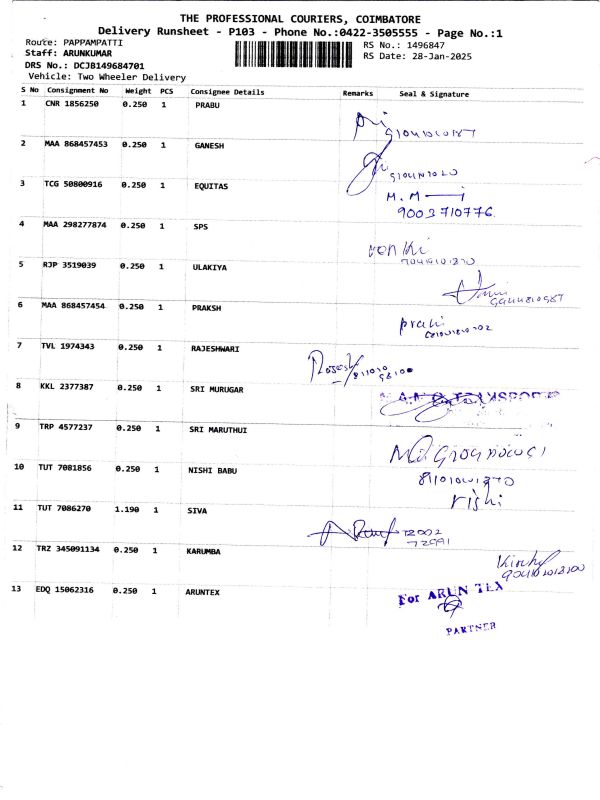 THE PROFESSIONAL COURIERS, COIMBATORE
Delivery Runsheet - P103 - Phone No.:0422-3505555 - Page No.:1
Route: PAPPAMPATTI
RS No.: 1496847
Staff: ARUNKUMAR
RS Date: 28-Jan-2025
DRS No.: DCJB149684701
Vehicle: Two Wheeler Delivery
S No Consignment No Weight PCS Consignee Details Remarks Seal & Signature
1 CNR 1856250 0.250 1 PRABU
2 MAA 868457453 0.250 1 GANESH
3 TCG 50800916 0.250 1 EQUITAS
M. M
9003710776
4 MAA 298277874 0.250 1 SPS
5 RJP 3519039 0.250 1 ULAKIYA
6 MAA 868457454 0.250 1 PRAKSH
7 TVL 1974343 0.250 1 RAJESHWARI
8 KKL 2377387 0.250 1 SRI MURUGAR
9 TRP 4577237 0.250 1 SRI MARUTHUI
10 TUT 7081856 0.250 1 NISHI BABU
rishi
11 TUT 7086270 1.190 1 SIVA
12 TRZ 345091134 0.250 1 KARUMBA
13 EDQ 15062316 0.250 1 ARUNTEX
For ARUN TEX
PARTNER